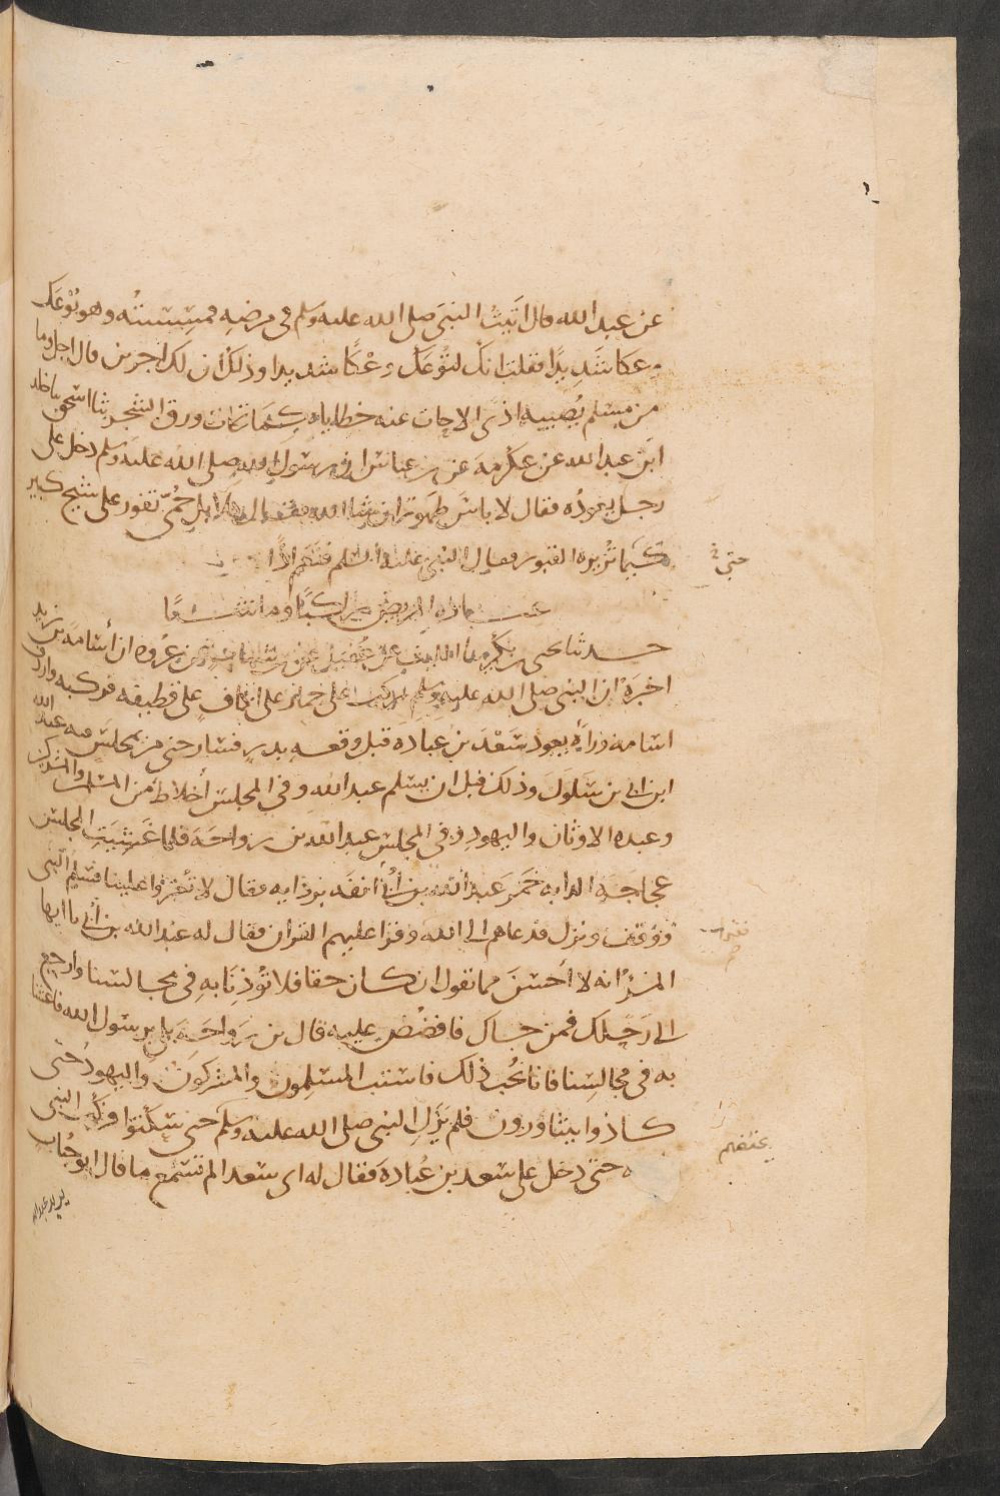 عن عبد الله قال اتيت النبي صلى الله عليه وسلم في مرضه فمسسته وهو يوعك
وعكا شديدا فقلت انك لتوعك وعكا شديدا وذلك ان لك اجرين قال اجل وما
من مسلم يصيبه اذى الا حات عنه خطاياه كما تحات ورق الشجر ثنا اسحق ثنا خالد
ابن عبد الله عن عكرمة عن بن عباس ان رسول الله صلى الله عليه وسلم دخل على
رجل يعوده فقال لا باس طهور ان شا الله فقال كلا بل حمى تفور على شيخ كبير
كيما تزيره القبور فقال النبي عليه السلم فنعم اذا
حتى
عيادة المريض راكبا وماشيا
حدثنا يحيى بن بكير ثنا الليث عن عقيل عن بن شهاب عن عروه ان أسامة بن زيد
اخبره ان النبي صلى الله عليه وسلم ركب على حمار على اكاف على قطيفه فدكيه واردف
اسامه وراه يعود سعد بن عباده قبل وقعه بدر فسار حتى مر بمجلس فيه عبد الله
ابن ابي بن سلول وذلك قبل ان يسلم عبد الله وفي المجلس أخلاط من المسلمين والمشركين
وعبده الاوثان واليهود وفي المجلس عبد الله بن رواحة فلما غشيت المجلس
عجاجه الدابه خمر عبد الله بن أبي انفه بردايه فقال لا تغبروا علينا فسلم النبي
ووقف ونزل فدعاهم الى الله وقرا عليهم القران فقال له عبد الله بن أبي يا ايها
المرء انه لا أحسن مما تقول ان كان حقا فلا توذنا به في مجالسنا وارجع
الى رحلك فمن جاك فاقصص عليه قال بن رواحة بلى يرسول الله فاغشنا
به في مجالسنا فانا نحب ذلك فاستب المسلمون والمشركون واليهود حتى
كادوا يتثاورون فلم يزل النبي صلى الله عليه وسلم حتى سكنوا فركب النبي
يخفضهم
ه حتى دخل على سعد بن عبادة فقال له اى سعد الم تسمع ما قال ابو حباب
يريد عبد الله